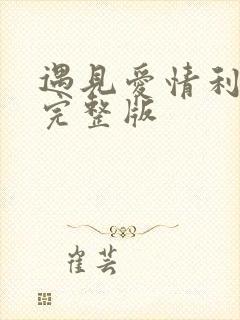 遇見愛情利
完整版
崔芸